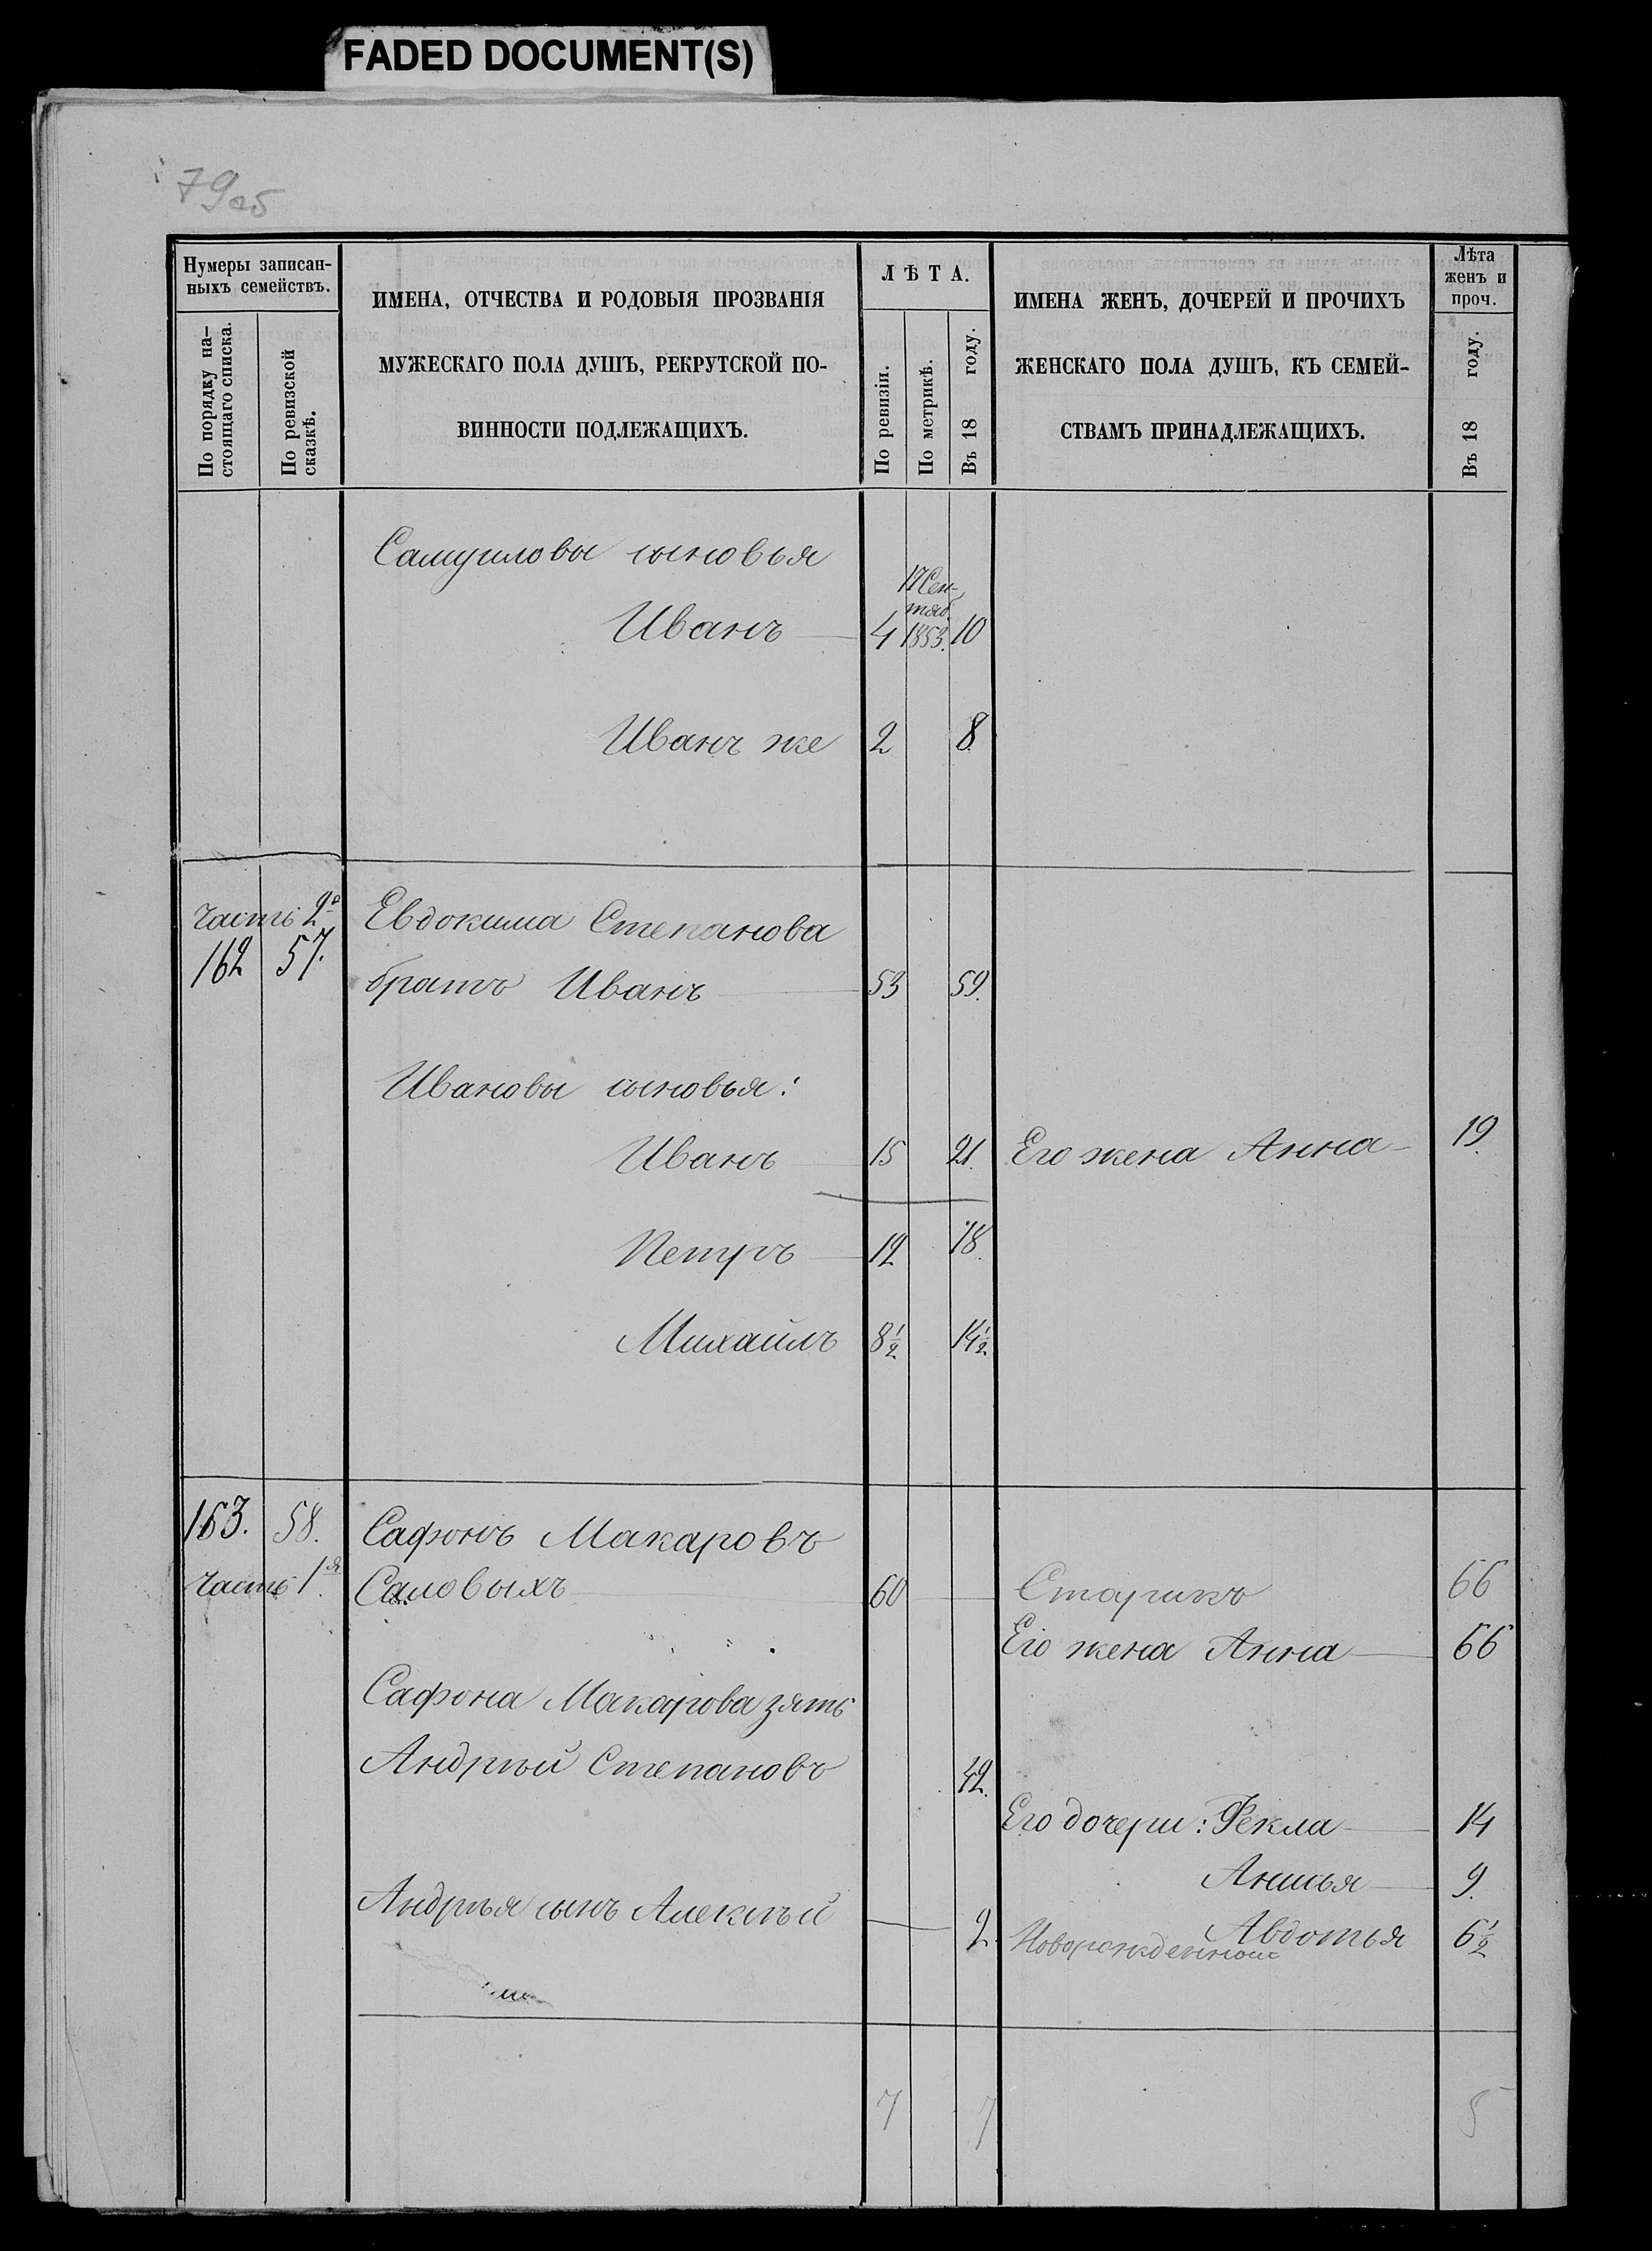 FADED DOCUMENT(S)
79 об
Нумеры записан-
ныхъ семействъ.
По порядку на-
стоящаго списка.
По ревизской
сказкѣ.
ИМЕНА, ОТЧЕСТВА И РОДОВЫЯ ПРОЗВАНІЯ
МУЖЕСКАГО ПОЛА ДУШЪ, РЕКРУТСКОЙ ПО-
ВИННОСТИ ПОДЛЕЖАЩИХЪ.
ЛѢТА.
По ревизіи.
По метрикѣ.
Въ 18 году.
ИМЕНА ЖЕНЪ, ДОЧЕРЕЙ И ПРОЧИХЪ
ЖЕНСКАГО ПОЛА ДУШЪ, КЪ СЕМЕЙ-
СТВАМЪ ПРИНАДЛЕЖАЩИХЪ.
Лѣта
женъ и
проч.
Въ 18 году.
Самуиловы сыновья
17 Сен-
тяб.
Иванъ 4 1853. 10
Иванъ же 2 8
часть 2я Евдокима Степанова
162 57. братъ Иванъ 53 59.
Ивановы сыновья:
Иванъ 15 21. Его жена Анна 19.
Петръ 12 18.
Михаилъ 8½ 14½
163. 58. Сафонъ Макаровъ
часть 1я. Саловыхъ 60 Старикъ 66
Его жена Анна 66
Сафона Макарова зять
Андрѣй Степановъ 42.
Его дочери: Ѳекла 14
Анисья 9.
Андрѣя сынъ Алексѣй 2. Новорожденный Авдотья 6½
7 7 5